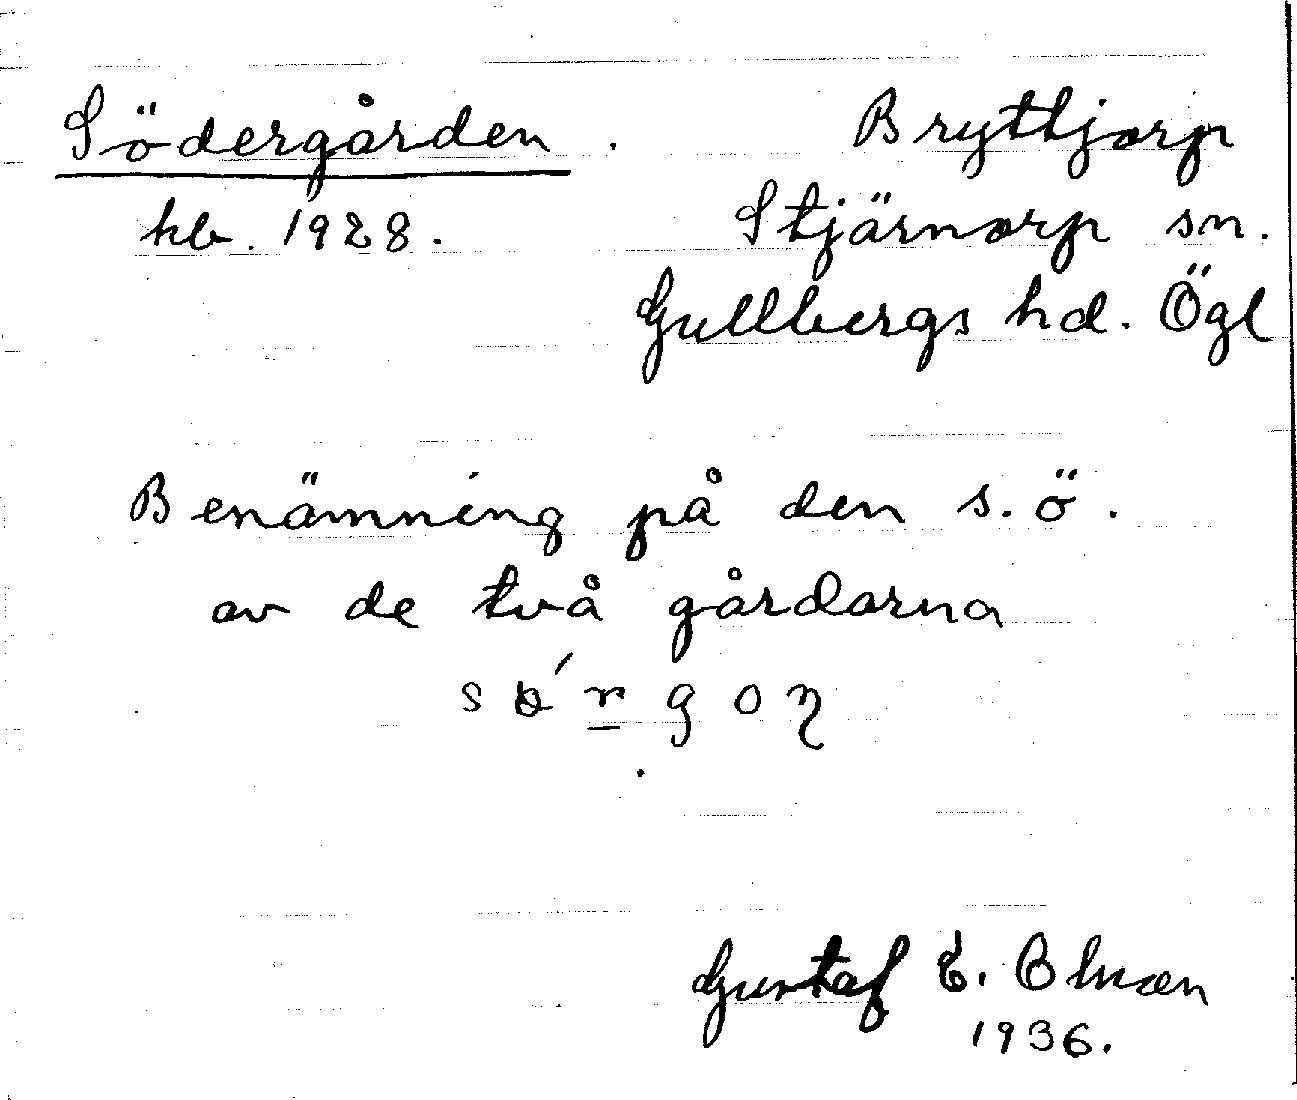 Södergården. Bryttjorp
kb. 1928. Stjärnorp sn.
Gullbergs hd. Ögl
Benämning på den s.ö.
av de två gårdarna
Gustaf E. Olsson
1936.